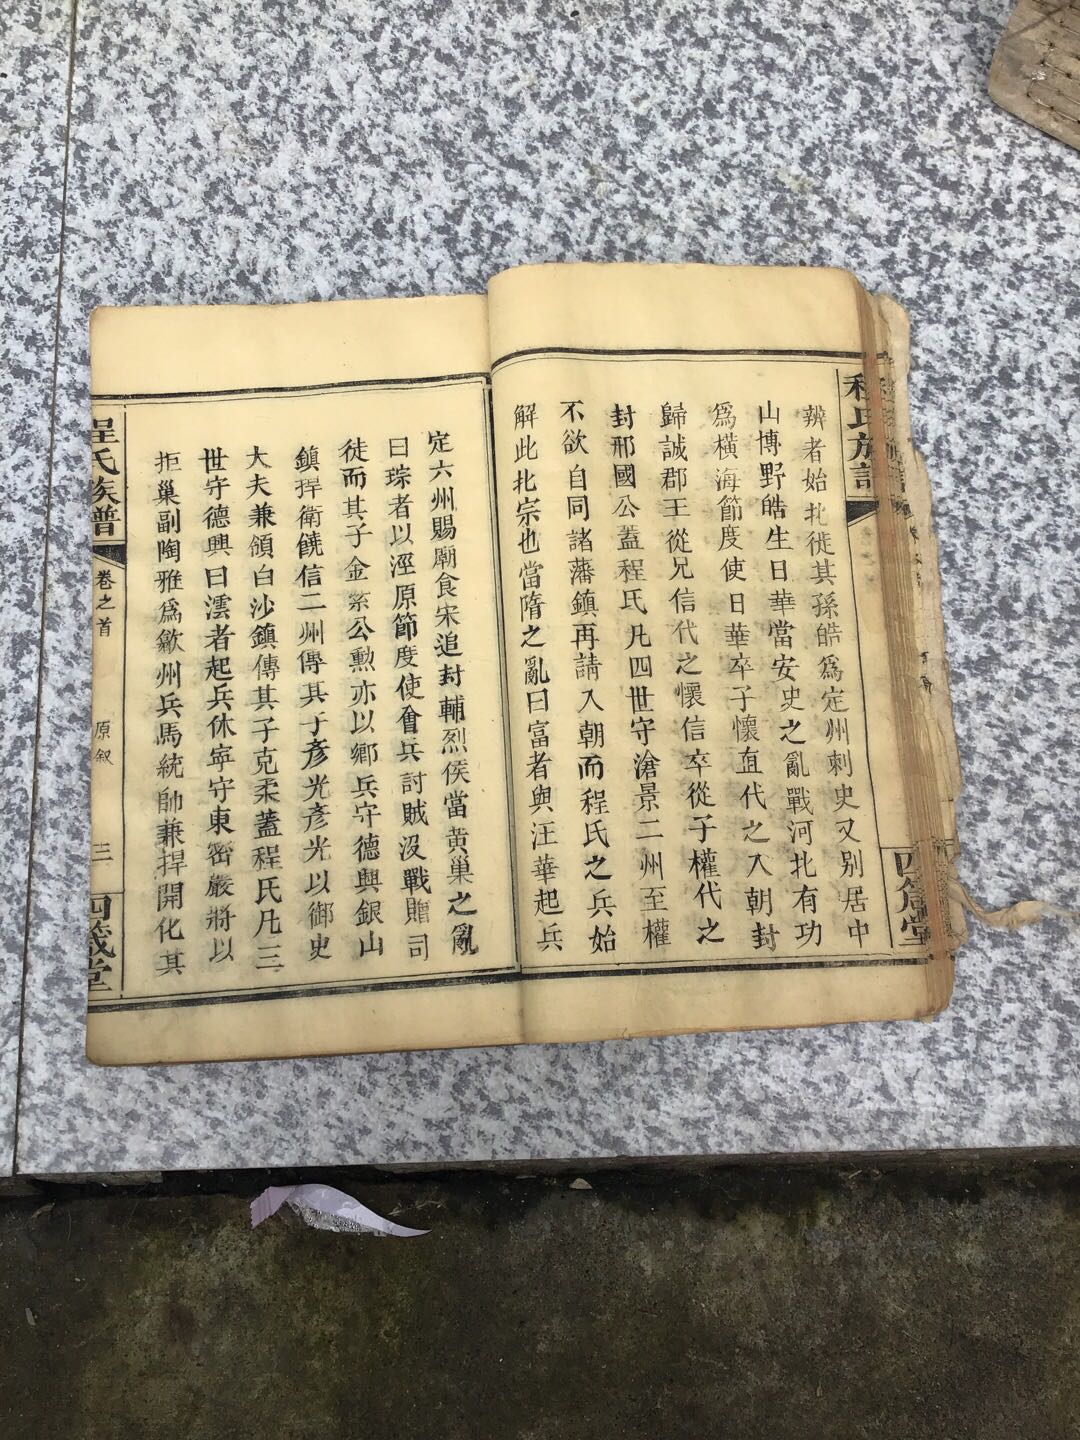 程氏族譜
四箴堂
辨者始北徙其孫皓爲定州刺史又別居中
山博野皓生日華當安史之亂戰河北有功
爲橫海節度使日華卒子懷直代之入朝封
歸誠郡王從兄信代之懷信卒從子權代之
封邢國公蓋程氏凡四世守滄景二州至權
不欲自同諸藩鎮再請入朝而程氏之兵始
解此北宗也當隋之亂曰富者與汪華起兵
定六州賜廟食宋追封輔烈侯當黃巢之亂
曰琮者以涇原節度使會兵討賊沒戰贈司
徒而其子金紫公勲亦以鄉兵守德興銀山
鎮捍衛饒信二州傳其子彥光彥光以御史
大夫兼領白沙鎮傳其子克柔蓋程氏凡三
世守德興曰澐者起兵休寧守東密嚴將以
拒巢副陶雅爲歙州兵馬統帥兼捍開化其
程氏族譜
卷之首
原敘
三
四箴堂